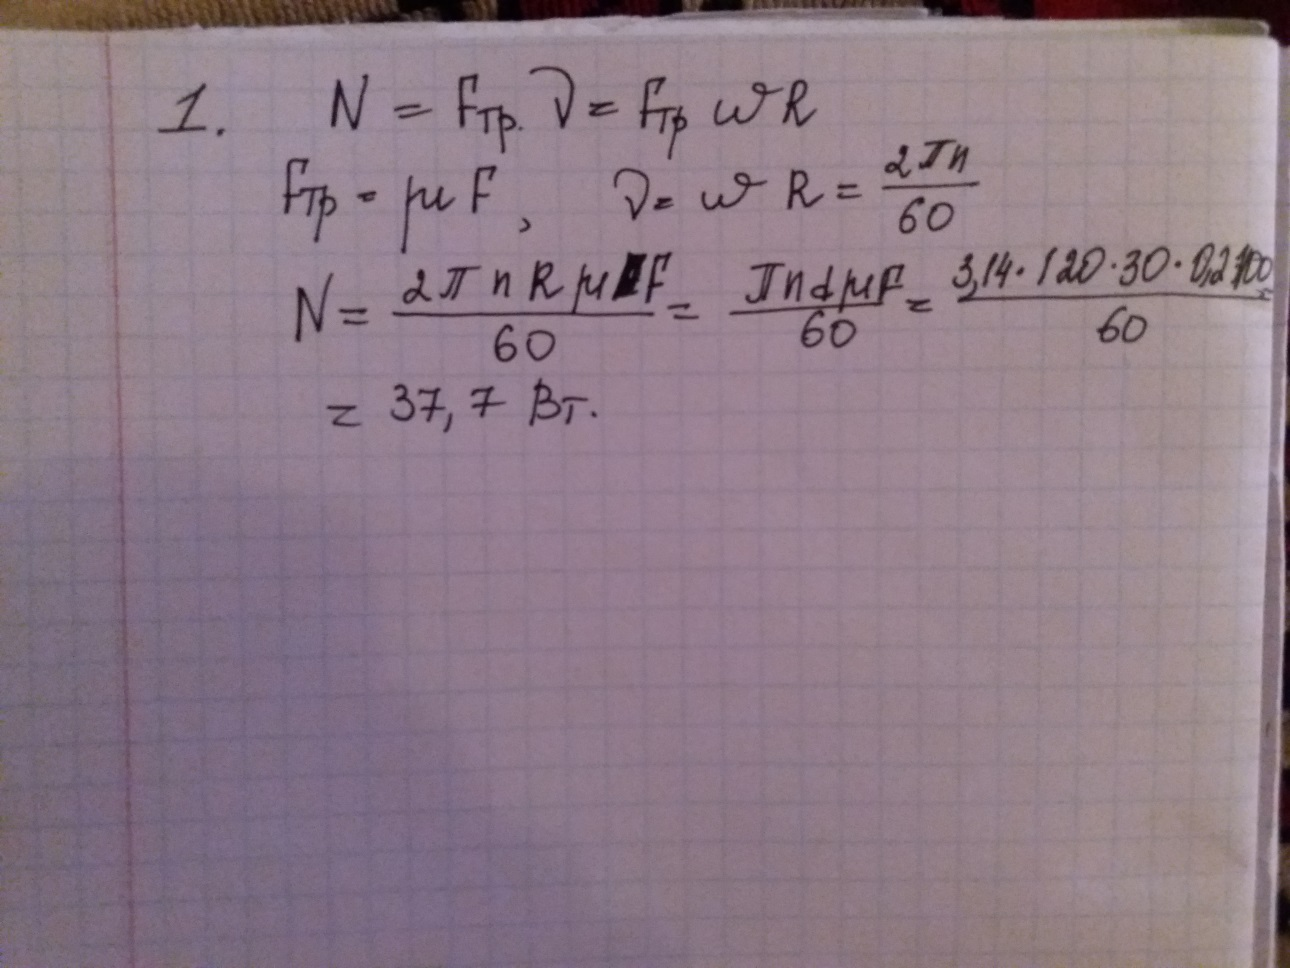 1. N = Fтр. V = Fтр ω R
Fтр = μ F, V = ω R = 2πn/60
N = 2π n R μ F/60 = πn d μ F/60 = 3,14·120·30·0,2·100/60 =
= 37,7 Вт.